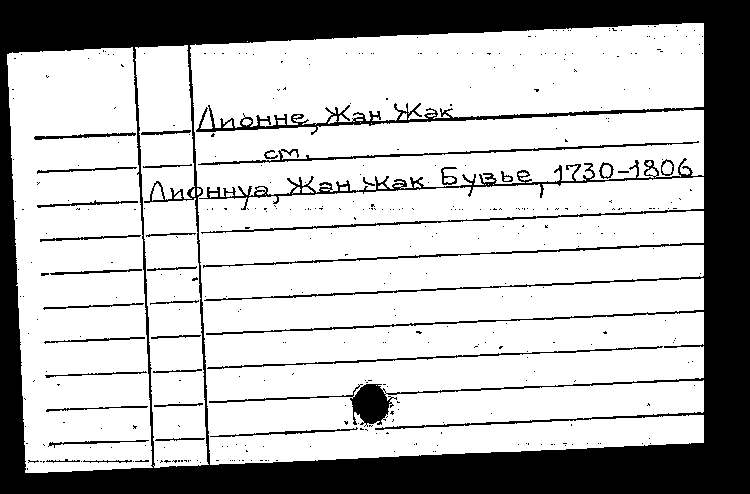 Лионне, Жан Жак
см.
Лионнуа, Жан Жак Бувье, 1730-1806